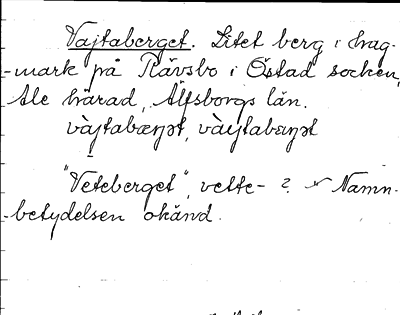 Vajtaberget. Litet berg i hag-
-mark på Rävsbo i Östad socken,
Ale härad, Älfsborgs län.
vàjtabæŋət, vàytabæŋət
"Veteberget", vette- ? Namn-
-betydelsen okänd.